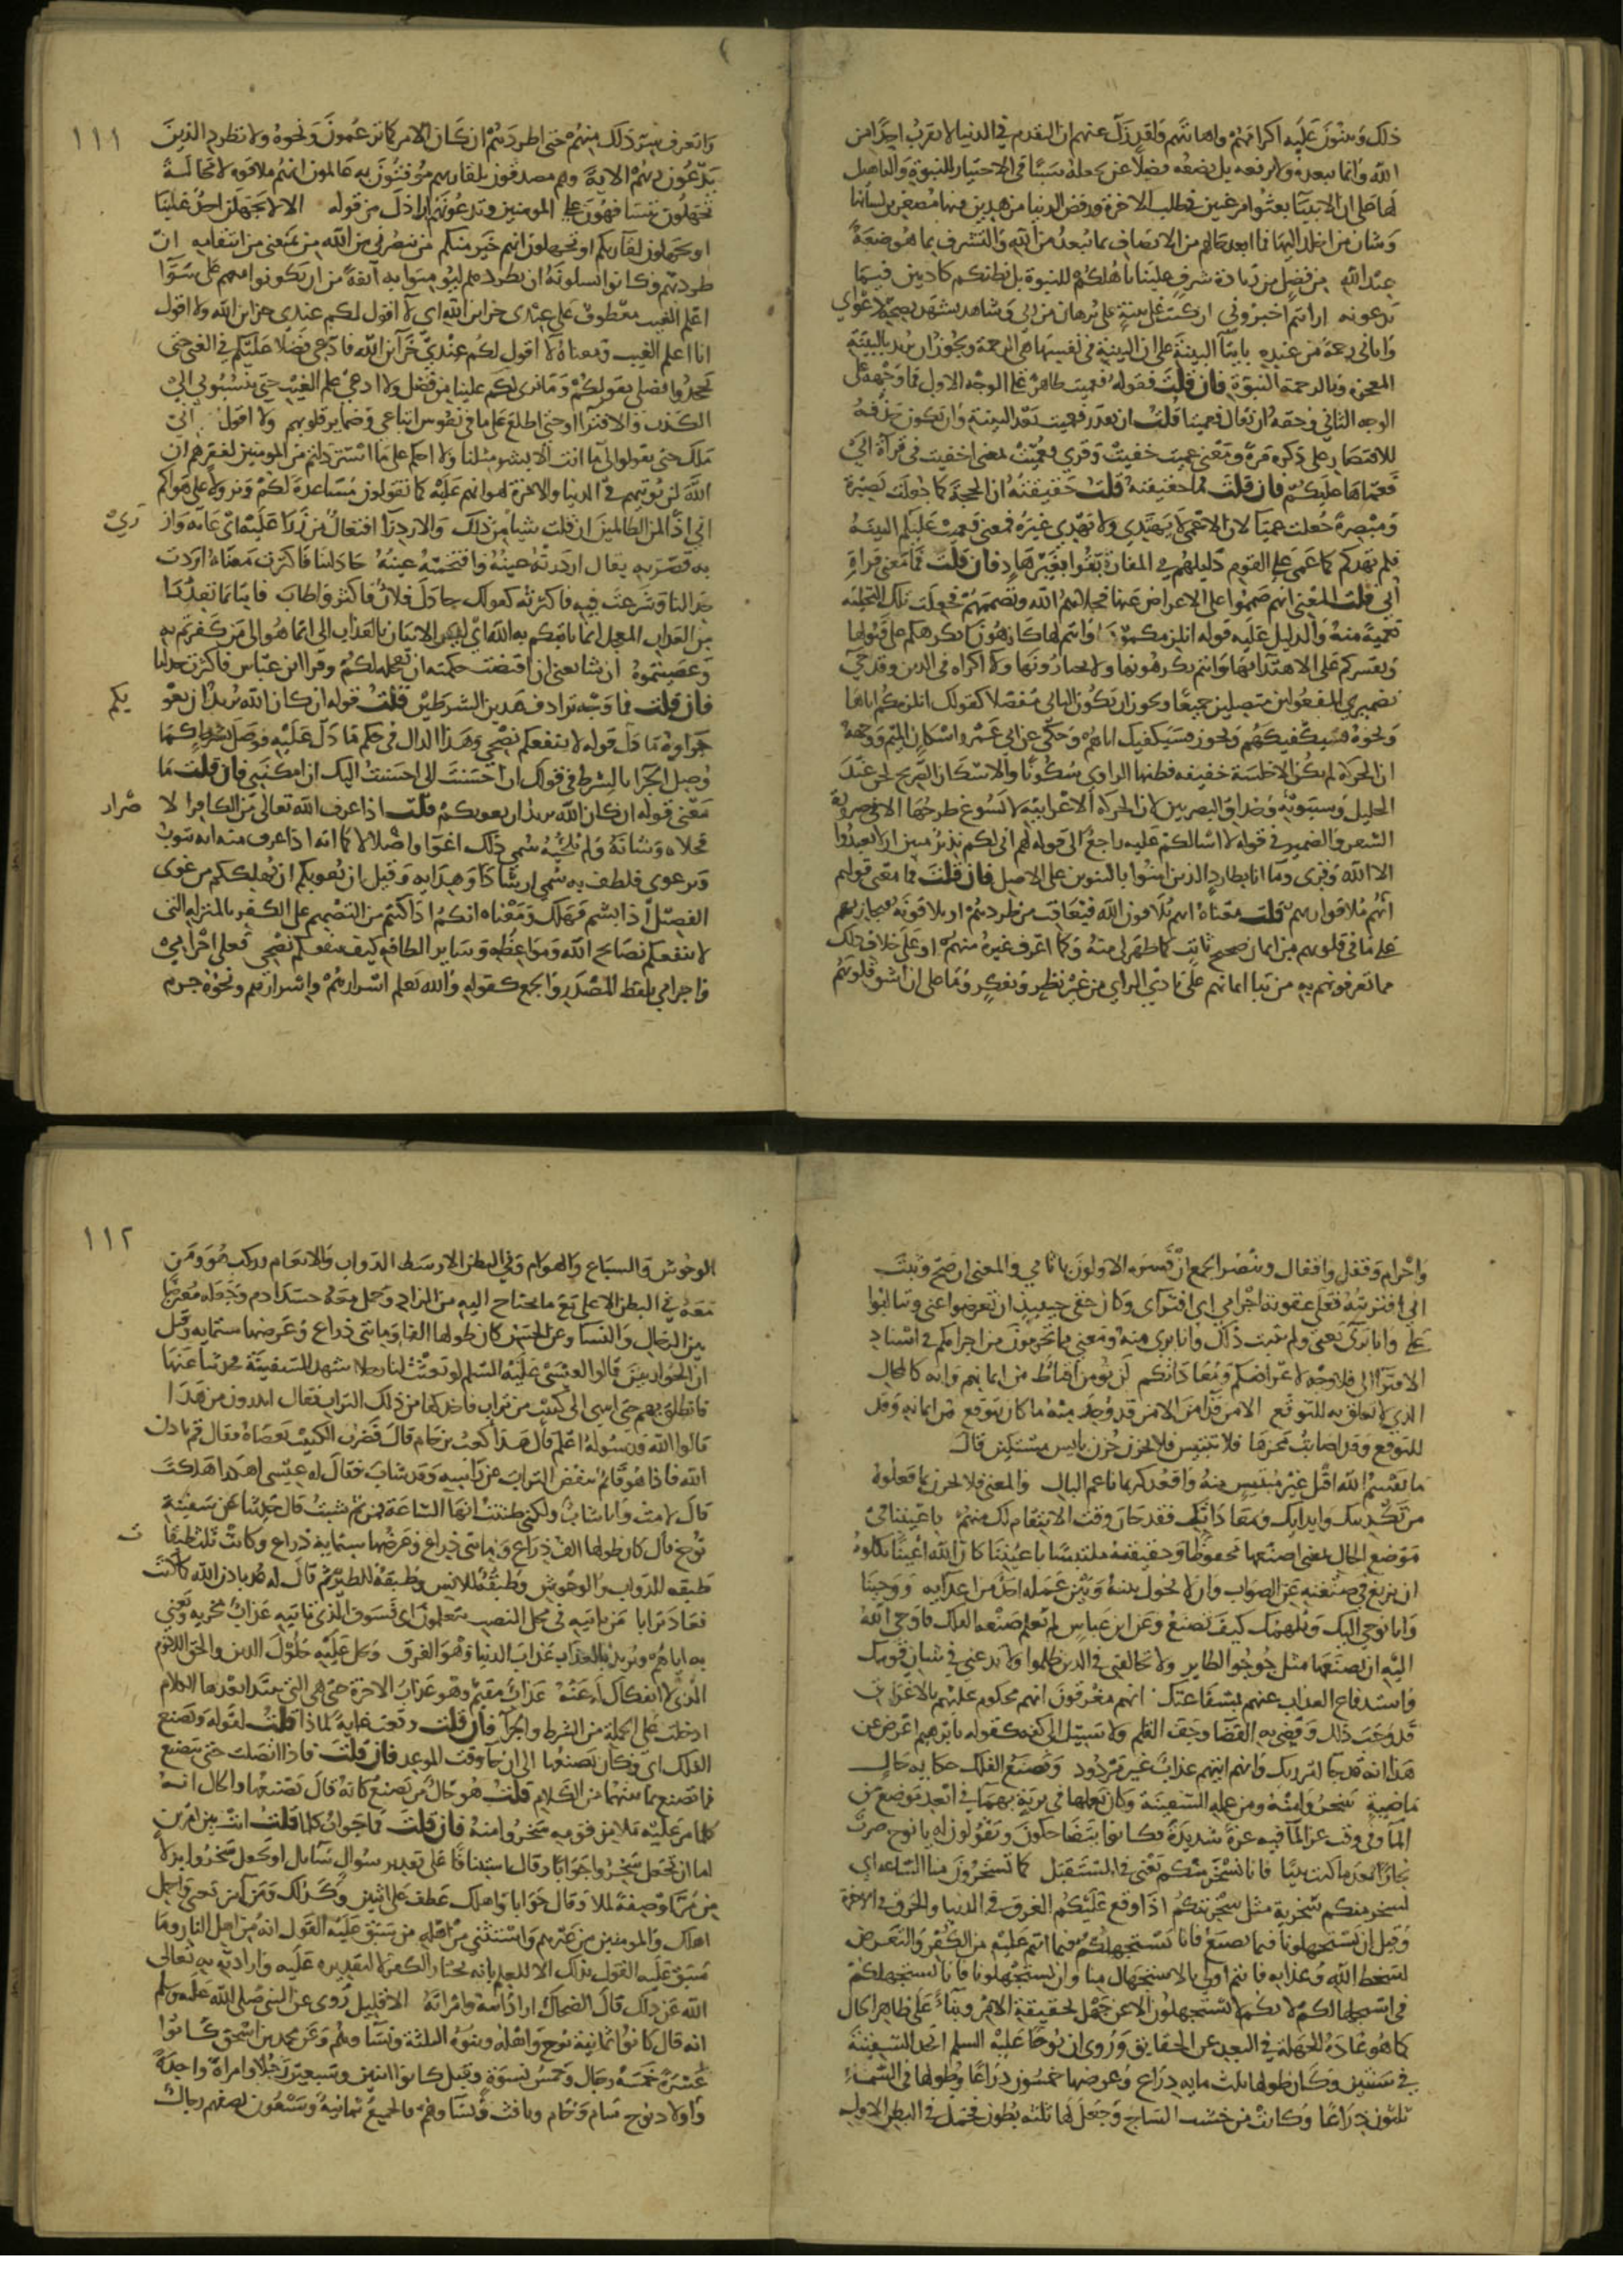 ذلك ويبنون عليه اكرامهم واهانتهم ولقد زل عنهم ان التقدم في الدنيا لا يقرب احدا من
الله وانما يبعده ولا يرفعه بل يضعه فضلا عن يجعله سببا في الاختيار للنبوة والتاهيل
لها على ان الانبيا بعثوا مرغبين في طلب الاخرة ورفض الدنيا مزهدين فيها مصغرين لشأنها
وشان من اخلد اليها فما ابعد حالهم من الاتصاف بما يبعد من الله والتشرف بما هو ضعة
عند الله من فضل من زيادة شرف علينا باهلكم للنبوة بل نظنكم كاذبين فيما
تدعونه ارايتم اخبروني ان كنت على بينة على برهان من ربي وشاهد يشهد بصحة دعواي
واتاني رحمة من عنده بايتا البينة على ان البينة في نفسها هي الرحمة ويجوز ان يريد بالبينة
المعجزة وبالرحمة النبوة فان قلت فقوله فعميت ظاهر على الوجه الاول فما وجهه على
الوجه الثاني وحقه ان يقال فعميتا قلت ان يقدر فعميت بعد البينة وان يكون حذفه
للاقتصار على ذكره مرة ومعنى عميت خفيت وقري فعميت بمعنى اخفيت وفي قراة ابي
فعماها عليكم فان قلت فما حقيقته قلت حقيقته ان الحجة كما جعلت بصيرة
ومبصرة جعلت عميا لان الاعمى لا يهتدي ولا يهدي غيره فمعنى فعميت عليكم البينة
فلم تهدكم كما عمي على القوم دليلهم في المفازة بقوا بغير هاد فان قلت فما معنى قراة
ابي قلت المعنى انهم صمموا على الاعراض عنها فخلاهم الله وتصميمهم فجعلت تلك التخلية
تعمية منه والدليل عليه قوله انلزمكموها وانتم لها كارهون يعني انكرهكم على قبولها
ونقسركم على الاهتدا بها وانتم تكرهونها ولا تختارونها ولا اكراه في الدين وقد جي
بضميري المفعولين متصلين جميعا ويجوز ان يكون الثاني منفصلا كقولك انلزمكم اياها
ونحوه فسيكفيكهم ويجوز فسيكفيك اياهم وحكي عن ابي عمرو اسكان الميم ووجهه
ان الحركة لم تكن الا خلسة خفيفة فظنها الراوي سكونا والاسكان الصريح لحن عند
الخليل وسيبويه وحذاق البصريين لان الحركة الاعرابية لا يسوغ طرحها الا في ضرورة
الشعر والضمير في قوله لا اسالكم عليه راجع الى قوله لهم اني لكم نذير مبين ان لا تعبدوا
الا الله وقري وما انا بطارد الذين امنوا بالتنوين على الاصل فان قلت فما معنى قولهم
انهم ملاقوا ربهم قلت معناه انهم يلاقون الله فيعاقب من طردهم او يلاقونه فيجازيهم
على ما في قلوبهم من ايمان صحيح ثابت كما ظهر لي منهم وما اعرف غيره منهم او على خلاف ذلك
مما تعرفونهم به من بنا ايمانهم على بادي الراي من غير نظر وتفكر وما على ان اشق قلوبهم
١١١
واتعرف سر ذلك منهم حتى اطردهم ان كان الامر كما تزعمون ونحوه ولا تطرد الذين
يدعون ربهم الاية وهم مصدقون بلقا ربهم موقنون به عالمون انهم ملاقوه لا محالة
تجهلون تتسافهون على المومنين وتدعونهم اراذل من قوله الا لا يجهلن احد علينا
او تجهلون لقا ربكم او تجهلون انهم خير منكم من ينصرني من الله من يمنعني من انتقامه ان
طردتهم وكانوا يسلونه ان يطردهم ليومنوا به انفة من ان يكونوا معهم على سوا
اعلم الغيب معطوف على عندي خزاين الله اي لا اقول لكم عندي خزاين الله ولا اقول
انا اعلم الغيب ومعناه لا اقول لكم عندي خزاين الله فادعي فضلا عليكم في الغنى حتى
تجحدوا فضلي بقولكم وما نرى لكم علينا من فضل ولا ادعي علم الغيب حتى تنسبوني الى
الكذب والافترا او حتى اطلع على ما في نفوس اتباعي وضماير قلوبهم ولا اقول اني
ملك حتى تقولوا لي ما انت الا بشر مثلنا ولا احكم على ما استرذلتم من المومنين لفقرهم ان
الله لن يوتيهم في الدنيا والاخرة لهوانهم عليه كما تقولون مساعدة لكم ونزولا على هواكم
اني اذا لمن الظالمين ان قلت شيا من ذلك والازدرا افتعال من زرى عليه اذا عابه وازرى
به قصر به يقال ازدرته عينه واقتحمته عينه جادلتنا فاكثرت معناه اردت
جدالنا وشرعت فيه فاكثرته كقولك جادل فلان فاكثر واطاب فاتنا بما تعدنا
من العذاب المعجل انما ياتيكم به الله اي ليس الاتيان بالعذاب الي انما هو الى من كفرتم به
وعصيتموه ان شا يعني ان اقتضت حكمته ان يعجله لكم وقرا ابن عباس فاكثرت جدلنا
فان قلت فما وجه ترادف هذين الشرطين قلت قوله ان كان الله يريد ان يغويكم
جزاوه ما دل قوله لا ينفعكم نصحي وهذا الدال في حكم ما دل عليه فوصل بشرط كما
وصل الجزا بالشرط في قولك ان احسنت الي احسنت اليك ان امكنني فان قلت فما
معنى قوله ان كان الله يريد ان يغويكم قلت اذا عرف الله تعالى من الكافر الاصرار
فخلاه وشانه ولم يلجيه سمي ذلك اغوا واضلالا كما انه اذا عرف منه انه يتوب
ويرعوي فلطف به سمي ارشادا وهداية وقيل ان يغويكم ان يهلككم من غوى
الفصيل اذا بشم فهلك ومعناه انكم اذا كنتم من التصميم على الكفر بالمنزلة التي
لا ينفعكم نصايح الله ومواعظه وساير الطافه كيف ينفعكم نصحي فعلي اجرامي
واجرامي بلفظ المصدر والجمع كقوله والله يعلم اسرارهم واسرارهم ونحوه جرم
واجرام وقفل واقفال وينصر الجمع ان فسره الاولون باثامي والمعنى ان صح وثبت
اني افتريته فعلي عقوبة اجرامي اي افتراي وكان حقي حينيذ ان تعرضوا عني وتتالبوا
علي وانا بري يعني ولم يثبت ذلك وانا بري منه ومعنى مما تجرمون من اجرامكم في اسناد
الافترا الي فلا وجه لاعراضكم ومعاداتكم لن يومن اقناط من ايمانهم وانه كالمحال
الذي لا تعلق به للتوقع الا من قد امن الا من قد وجد منه ما كان يتوقع من ايمانه وقد
للتوقع وقد اصابت محزها فلا تبتيس فلا تحزن حزن بايس مستكين قال
ما يقسم الله اقبل غير مبتيس منه واقعد كريما ناعم البال والمعنى فلا تحزن بما فعلوه
من تكذيبك وايذايك ومعاداتك فقد حان وقت الانتقام لك منهم باعيننا في
موضع الحال بمعنى اصنعها محفوظا وحقيقته ملتبسا باعيننا كان لله اعينا تكلوه
ان يزيغ في صنعته عن الصواب وان لا يحول بينه وبين عمله احد من اعدايه ووحينا
وانا نوحي اليك ونلهمك كيف تصنع وعن ابن عباس لم يعلم صنعة الفلك فاوحى الله
اليه ان يصنعها مثل جوجو الطاير ولا تخاطبني في الذين ظلموا ولا تدعني في شان قومك
واستدفاع العذاب عنهم بشفاعتك انهم مغرقون انهم محكوم عليهم بالاغراق
قد وجب ذلك وقضي به القضا وجف القلم ولا سبيل الى كفه كقوله يا ابرهيم اعرض عن
هذا انه قد جا امر ربك وانهم اتيهم عذاب غير مردود ويصنع الفلك حكاية حال
ماضية سخروا منه ومن عمله السفينة وكان يعملها في برية بهما في ابعد موضع من
الما وفي وقت عز الما فيه عزة شديدة فكانوا يتضاحكون ويقولون له يا نوح صرت
نجارا بعد ما كنت نبيا فانا نسخر منكم يعني في المستقبل كما تسخرون منا الساعة اي
نسخر منكم سخرية مثل سخريتكم اذا وقع عليكم الغرق في الدنيا والحرق في الاخرة
وقيل ان تستجهلونا فيما نصنع فانا نستجهلكم فيما انتم عليه من الكفر والتعرض
لسخط الله وعذابه فانتم اولى بالاستجهال منا وان تستجهلونا فانا نستجهلكم
في استجهالكم لانكم لا تستجهلون الا عن جهل بحقيقة الامر وبنا على ظاهر الحال
كما هو عادة الجهلة في البعد عن الحقايق وروي ان نوحا عليه السلم اتخذ السفينة
في سنتين وكان طولها ثلث ماية ذراع وعرضها خمسون ذراعا وطولها في السماء
ثلثون ذراعا وكانت من خشب الساج وجعل لها ثلثة بطون فحمل في البطن الاول
١١٢
الوحوش والسباع والهوام وفي البطن الاوسط الدواب والانعام وركب هو ومن
معه في البطن الاعلى مع ما يحتاج اليه من الزاد وحمل معه جسد ادم وجعله معترضا
بين الرجال والنسا وعن الحسن كان طولها الفا ومايتي ذراع وعرضها ستماية وقيل
ان الحواريين قالوا لعيسى عليه السلم لو بعثت لنا رجلا شهد السفينة يحدثنا عنها
فانطلق بهم حتى انتهى الى كثيب من تراب فاخذ كفا من ذلك التراب فقال اتدرون من هذا
قالوا الله ورسوله اعلم قال هذا كعب بن حام قال فضرب الكثيب بعصاه فقال قم باذن
الله فاذا هو قايم ينفض التراب عن راسه وقد شاب فقال له عيسى اهكذا هلكت
قال لا مت وانا شاب ولكني ظننت انها الساعة فمن ثم شبت قال حدثنا عن سفينة
نوح قال كان طولها الف ذراع ومايتي ذراع وعرضها ستماية ذراع وكانت ثلث طبقات
طبقة للدواب والوحوش وطبقة للانس وطبقة للطير ثم قال له عد باذن الله كما كنت
فعاد ترابا من ياتيه في محل النصب بتعلمون اي فسوف الذي ياتيه عذاب يخزيه ويعني
به اياهم ويريد بالعذاب عذاب الدنيا وهو الغرق ويحل عليه حلول الدين والحق اللازم
الذي لا انفكاك له عنه عذاب مقيم وهو عذاب الاخرة حتى هي التي يبتدا بعدها الكلام
ادخلت على الجملة من الشرط والجزا فان قلت وقعت غاية لماذا قلت لقوله ويصنع
الفلك اي وكان يصنعها الى ان جا وقت الموعد فان قلت فاذا اتصلت حتى بيصنع
فما تصنع بما بينهما من الكلام قلت هو حال من يصنع كانه قال يصنعها والحال انه
كلما مر عليه ملا من قومه سخروا منه فان قلت فما جواب كلما قلت انت بين امرين
اما ان تجعل سخروا جوابا وقال استينافا على تقدير سوال سايل او تجعل سخروا بدلا
من مر او صفة لملا وقال جوابا واهلك عطف على اثنين وكذلك ومن امن يعني واحمل
اهلك والمومنين من غيرهم واستثنى من اهله من سبق عليه القول انه من اهل النار وما
سبق عليه القول بذلك الا للعلم بانه يختار الكفر لا لتقديره عليه وارادته به تعالى
الله عن ذلك قال الضحاك اراد ابنه وامراته الا قليل روي عن النبي صلى الله عليه وسلم
انه قال كانوا ثمانية نوح واهله وبنوه الثلثة ونساوهم وعن محمد بن اسحق كانوا
عشرة خمسة رجال وخمس نسوة وقيل كانوا اثنين وسبعين رجلا وامراة واحدة
واولاد نوح سام وحام ويافث ونساوهم فالجميع ثمانية وسبعون نصفهم رجال